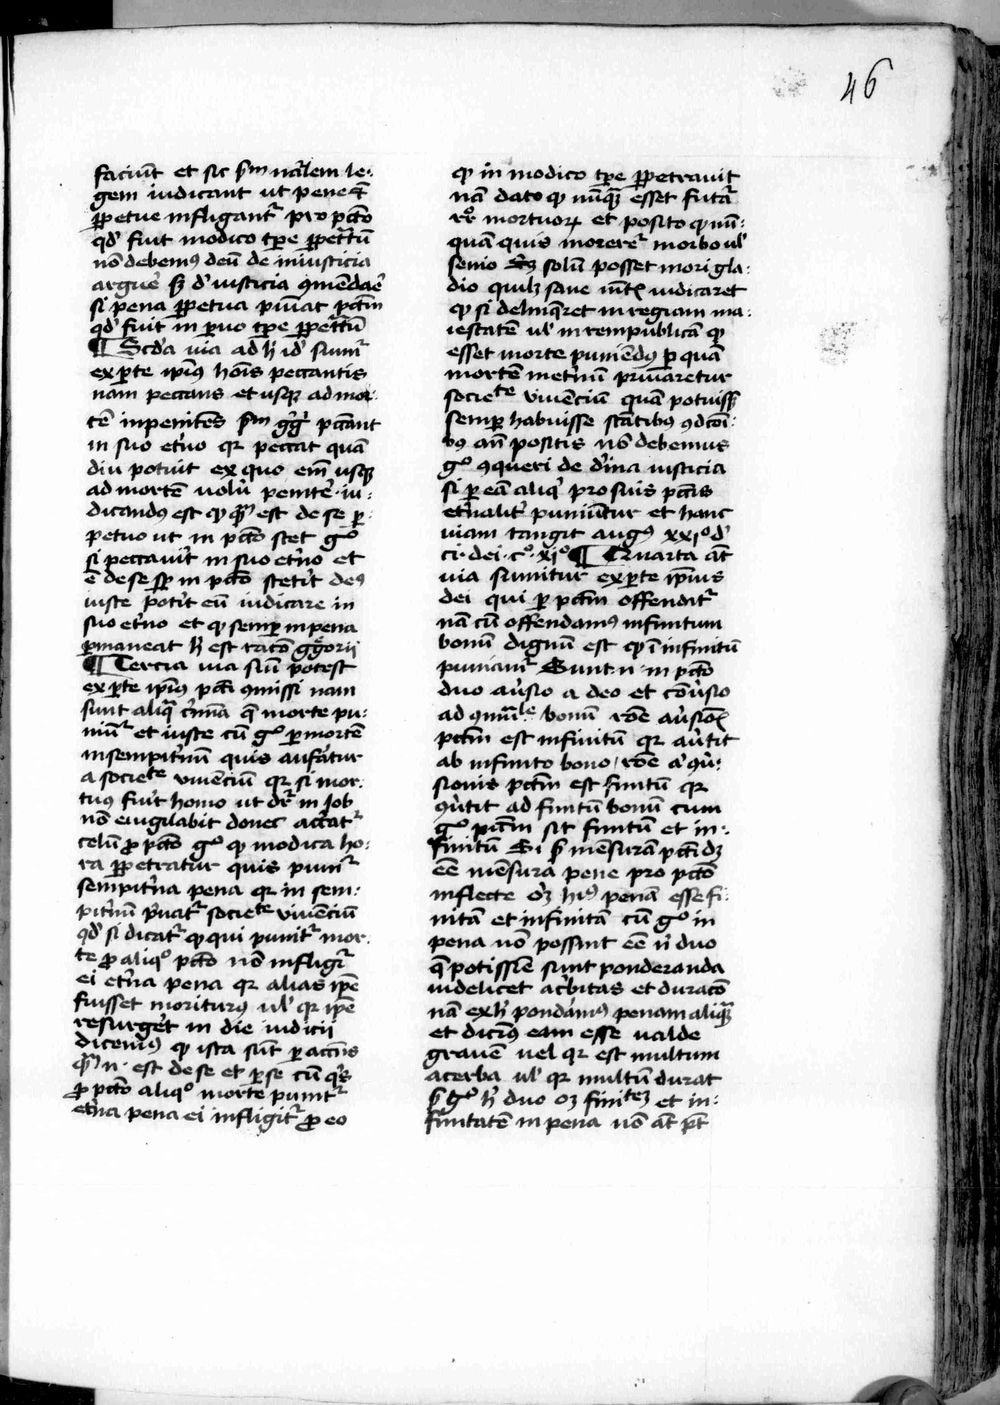 46
faciūt et sic sm nālem le⸗
gem iudicant ut pene
ꝑpetue infligantr pro pctō
qd' fuit modico tpre ꝑpetᵃtū
nō debemꝰ deū de iniusticia
arguer' sꝫ d' iusticia ꝯmēdar'
si pena ꝑpetua puniat pctm̄
qd' fuit in ꝑuo tpre ꝑpetᵃtū
¶ Scd'a uia ad h' id' sumr
ex ꝑte ipīus hoīs peccantis
nam peccans et usqꝫ ad mor⸗
tē inpenitēs sm gg' pccant
in suo etn̄o qr peccat quā
diu potuit ex quo eīm usqꝫ
ad mortē uoluit penitē' iu⸗
dicandꝰ est qꝫ est de se ꝑ⸗
petuo ut in pctō stet go
si peccauit in suo etn̄o et
ē de se sꝑ in pctō stetit deꝰ
iuste potit eū iudicare in
suo etn̄o et qꝫ semꝑ in pena
ꝑmaneat h' est racō ggorii
¶ Tercia uia sum potest
ex ꝑte ipīus pcti ꝯmissi nam
sunt aliqᵃ cim̄na q̄ morte pu⸗
niūr et iuste cū go ꝑ mortē
in sempitn̄ū quis aufatur
a societe viuenciū qr si mor⸗
tuꝰ fuit homo ut dr in Job
nō euigilabit donec attatr
celū ꝓ pctō go qꝫ modica ho⸗
ra ꝑpetratur quis punir
sempitn̄a pena qr in sem⸗
pitn̄ū pⁱuatr societe viuenciū
qd' si dicatr qꝫ qui punitr mor⸗
te ꝓ aliqo pctō nō infligir
ei etn̄a pena qr alias ipē
fuisset moriturꝰ ul' qr ipē
resurget in die iudicii
dicemꝰ qꝫ ista sūt ꝑ accn̄s
n· est de se et ꝑ se cū qis
ꝓ pctō aliqo morte punitr
etn̄a pena ei infligitr ꝓ eo
qꝫ in modico tpre ꝑpetrauit
nā dato qꝫ nūqᵃ esset futᵃ
rō mortuoꝝ et posito qꝫ nū⸗
quā quis morerer morbo ul'
senio Sꝫ solū posset mori gla⸗
dio quilꝫ sane mētis iudicaret
qꝫ si delinqret in regiam ma⸗
iestatē ul' in rempublicā qꝫ
esset morte puniēdꝰ ꝑ quā
mortē in etn̄ū priuaretur
societe viuenciū quā potuiss
semꝑ habuisse stātibus ꝯdcōi⸗
bus an̄ positis nō debemus
go ꝯqueri de di'na iusticia
si ꝑ eā aliqi pro suis pctis
etn̄alit' puniūtur et hanc
uiam tangit augꝰ xxio d'
ci· dei· co· xio ¶ Quarta āt
uia sumitur ex ꝑte ipīus
dei qui ꝑ pctm̄ offenditr
nā cū offendamꝰ infinitum
bonū dignū est qꝫ ī infinitū
puniamr Sunt·n· in pctō
duo au'sio a deo et cōu'sio
ad ꝯmutle bonū rōe au'siōis
pctm̄ est infinitū qr au'tit
ab infinito bono / rōe a' ꝯu'⸗
sionis pctm̄ est finitū qr
ꝯu'tit ad finitū bonū cum
go pctm̄ sit finitū et in⸗
finitū Si s' mēsurā pcti dꝫ
eē mēsura pene pro pctō
inflicte oꝫ hiꝰ penā esse fi⸗
nitā et infinitā cū go in
pena nō possint eē n' duo
q̄ potissīe sunt ponderanda
uidelicet ac'bitas et duracō
nā ex h' pondamꝰ penam aliquā
et dicimꝰ eam esse ualde
grauē uel qr est multum
acerba ul' qr multū durat
s' go h' duo oꝫ finitetꝫ et in⸗
finitatē in pena nō āt pt